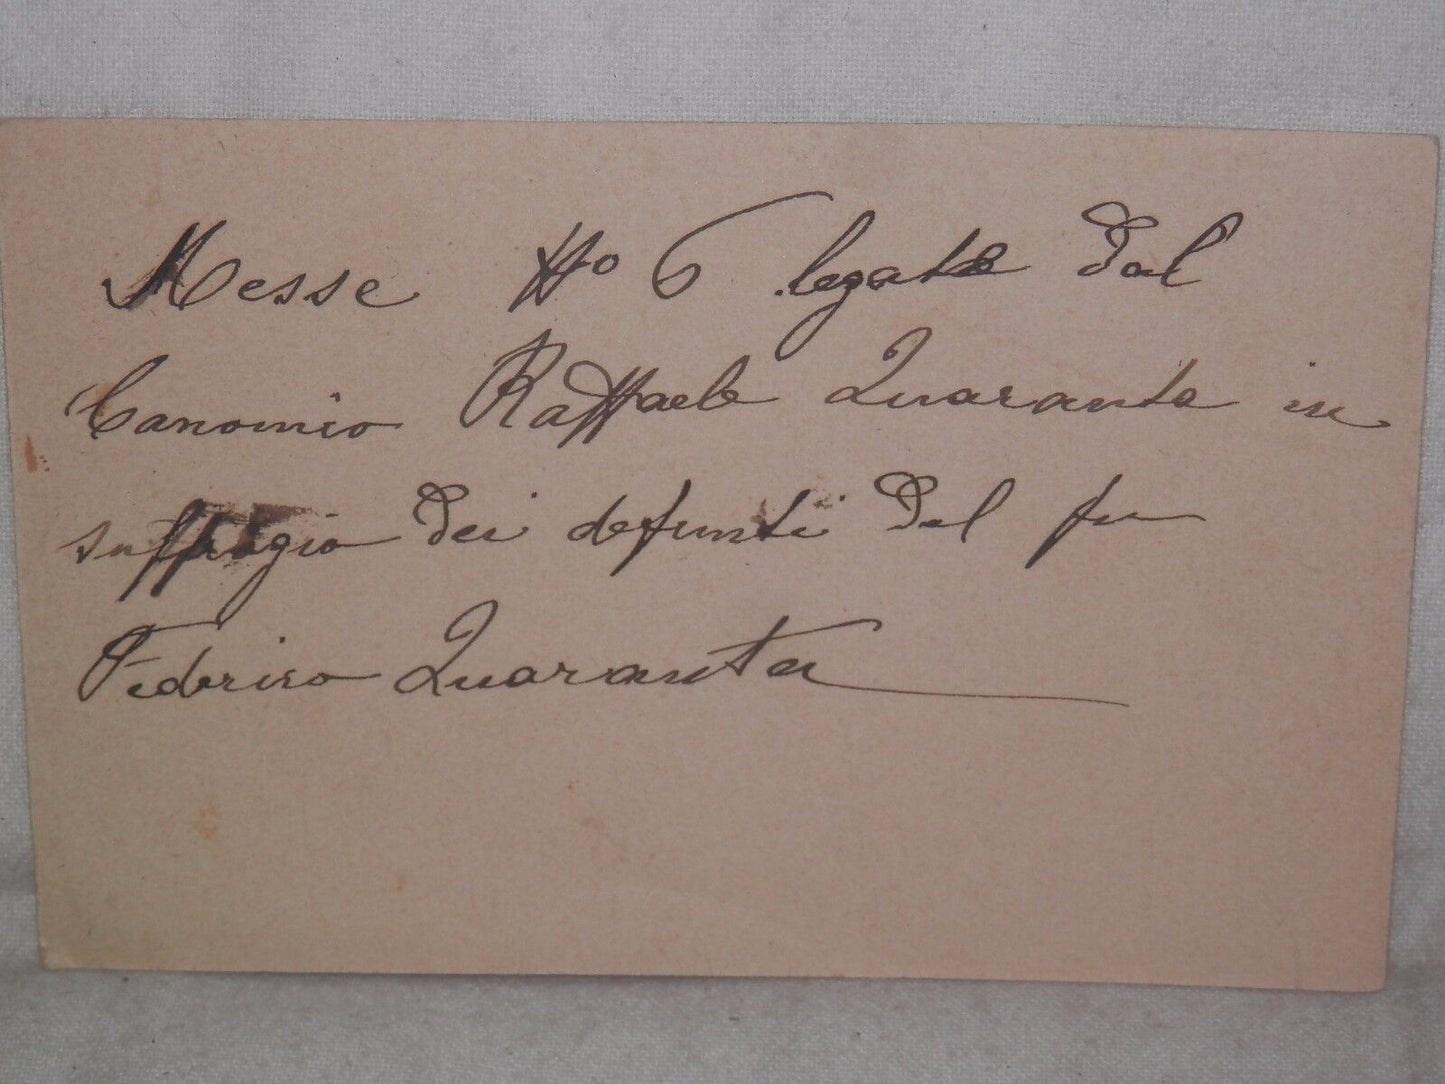 Messe No 6 legate dal
Canonico Raffaele Quaranta in
suffragio dei defunti del fu
Federico Quaranta